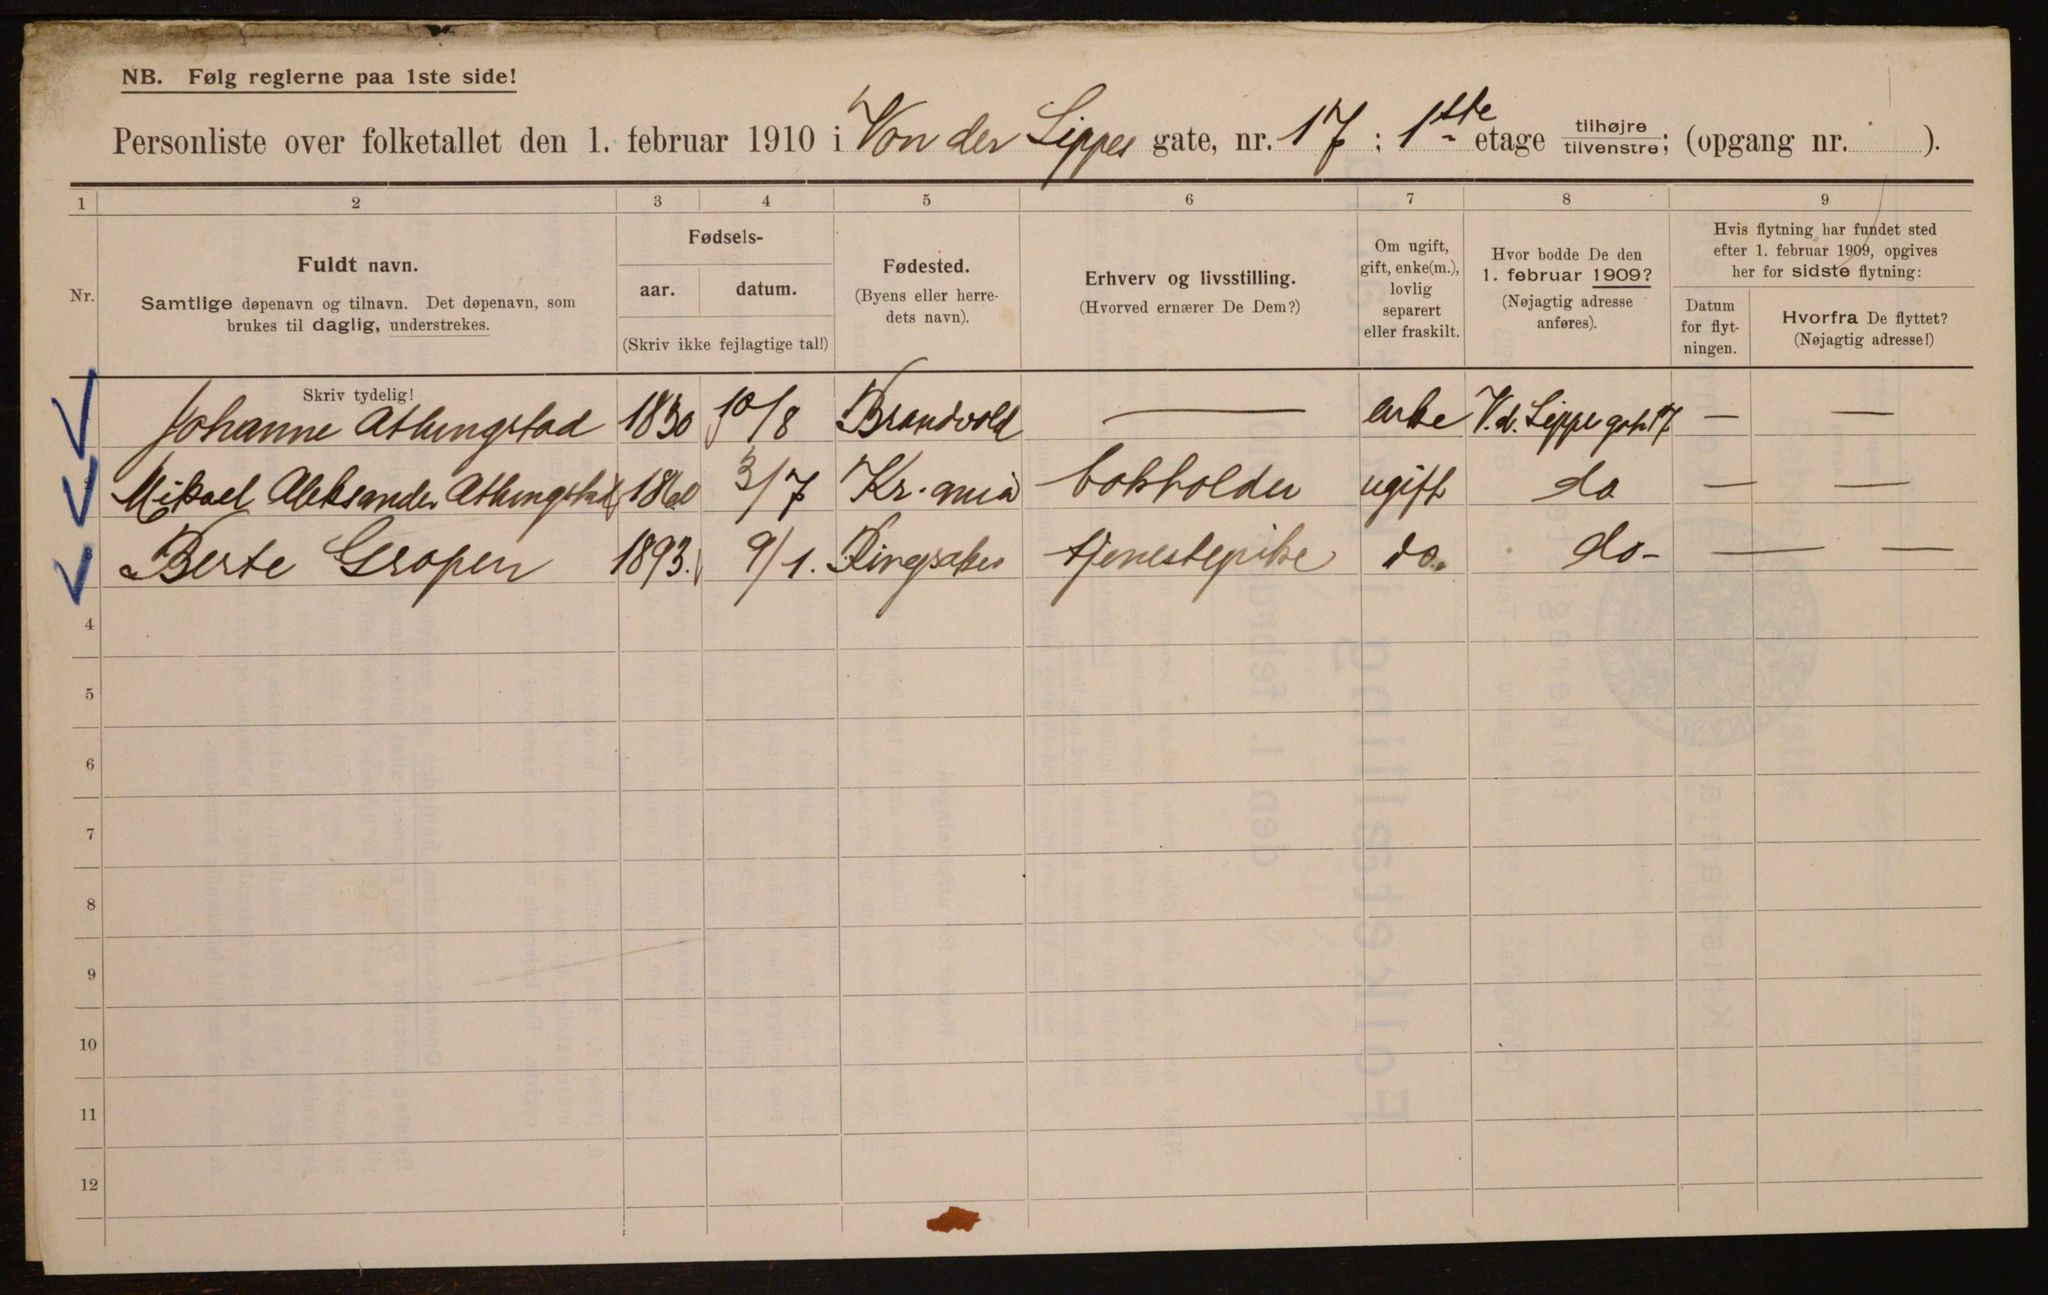 NB. Følg reglerne paa 1ste side!
Personliste over folketallet den 1. februar 1910 i Von der Lippes gate, nr. 17 ; 1ste etage tilhøjre tilvenstre; (opgang nr. ).
1 2 3 4 5 6 7 8 9
Nr.
Fuldt navn.
Samtlige døpenavn og tilnavn. Det døpenavn, som
brukes til daglig, understrekes.
Fødsels-
aar. datum.
(Skriv ikke fejlagtige tal!)
Fødested.
(Byens eller herre-
dets navn).
Erhverv og livsstilling.
(Hvorved ernærer De Dem?)
Om ugift,
gift, enke(m.),
lovlig
separert
eller fraskilt.
Hvor bodde De den
1. februar 1909?
(Nøjagtig adresse
anføres).
Hvis flytning har fundet sted
efter 1. februar 1909, opgives
her for sidste flytning:
Datum
for flyt-
ningen.
Hvorfra De flyttet?
(Nøjagtig adresse!)
Skriv tydelig!
Johanne Athungstad 1830 10/8 Brandvold — enke V.d. Lippe gt 17 — —
Mikael Aleksander Athungstad 1860 3/7 Kr.ania bokholder ugift do — —
3 Berte Gropen 1893. 9/1. Ringsaker tjenestepike do. do- — —
4
5
6
7
8
9
10
11
12